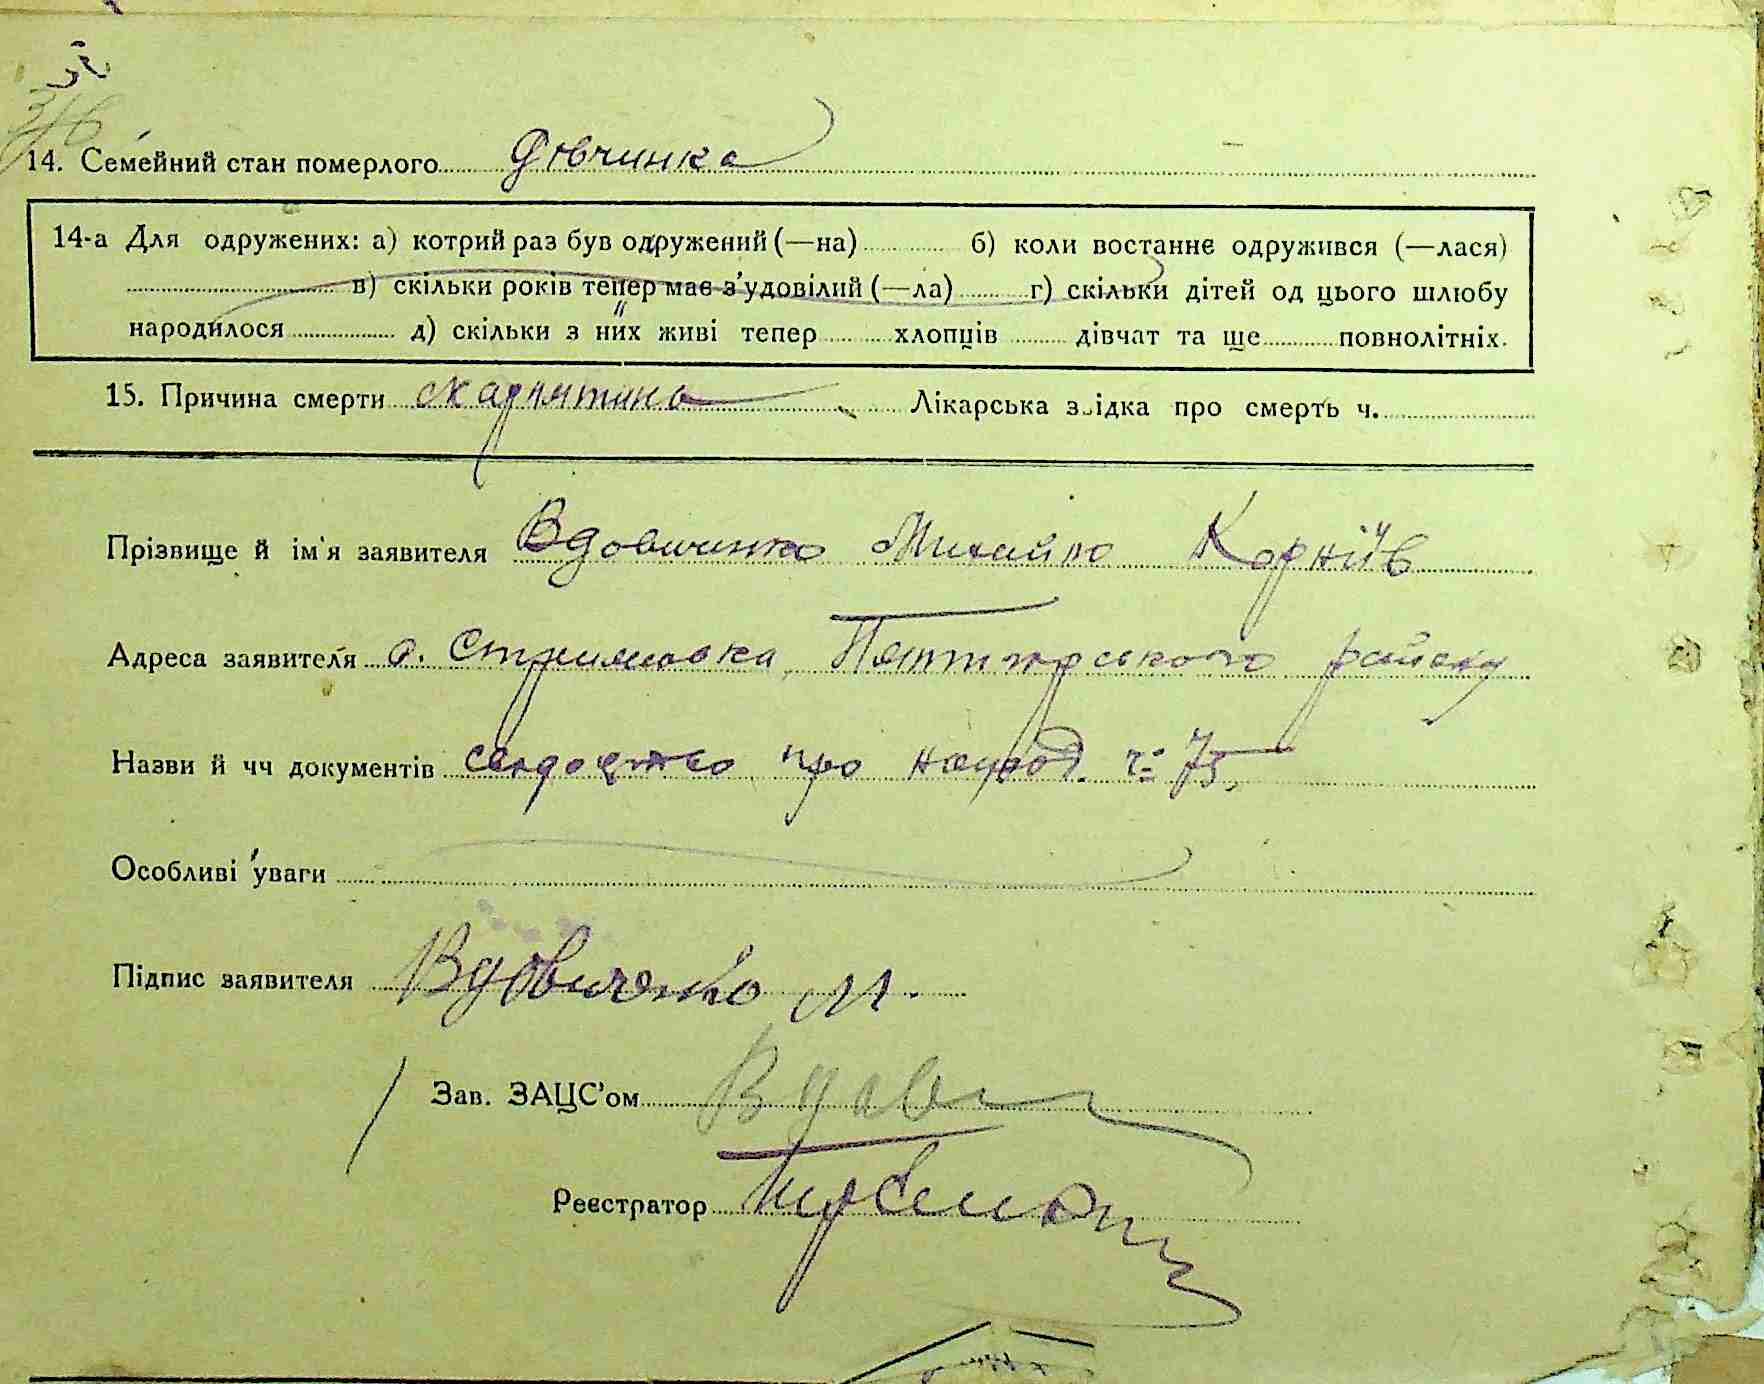 14. Семейний стан померлого дівчинка
14-а Для одружених: а) котрий раз був одружений (—на) б) коли востаннє одружився (—лася)
в) скільки років тепер має з'удовілий (—ла) г) скільки дітей од цього шлюбу
народилося д) скільки з них живі тепер хлопців дівчат та ще повнолітніх.
15. Причина смерти скарлятина Лікарська звідка про смерть ч.
Прізвище й ім'я заявителя Вдовиченко Михайло Корніїв
Адреса заявителя с. Стрижовка, Пятигорського району
Назви й чч документів свидоцтво про народ. ч= 75,
Особливі уваги
Підпис заявителя Вдовиченко М.
Зав. ЗАЦС'ом Вдов
Реєстратор